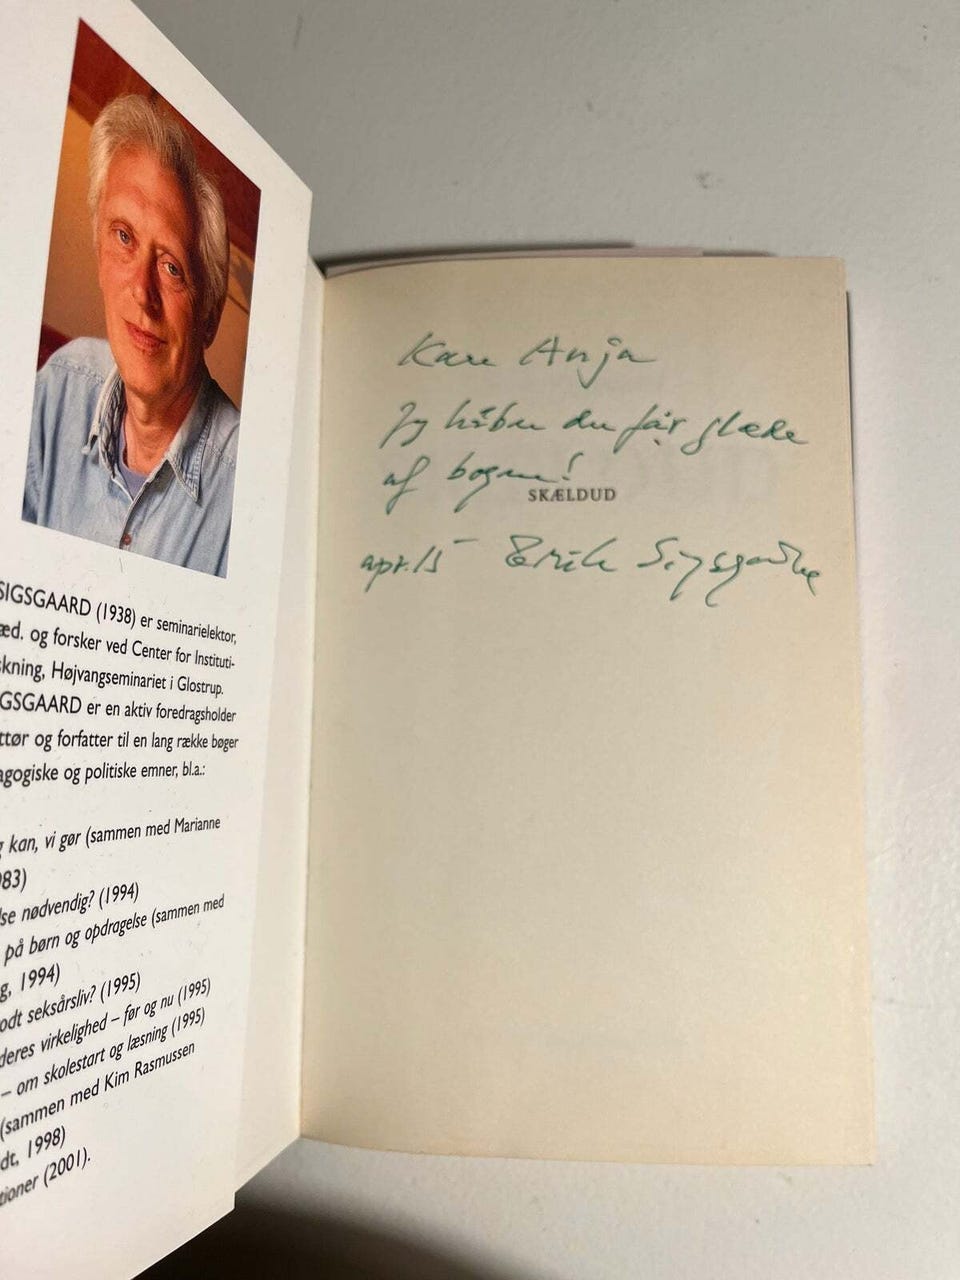 SIGSGAARD (1938) er seminarielektor,
æd. og forsker ved Center for Instituti-
skning, Højvangseminariet i Glostrup.
GSGAARD er en aktiv foredragsholder
ttør og forfatter til en lang række bøger
agogiske og politiske emner, bl.a.:
g kan, vi gør (sammen med Marianne
983)
lse nødvendig? (1994)
på børn og opdragelse (sammen med
g, 1994)
odt seksårsliv? (1995)
deres virkelighed – før og nu (1995)
– om skolestart og læsning (1995)
(sammen med Kim Rasmussen
dt, 1998)
tioner (2001).
Kære Anja
Jeg håber du får glæde
af bogen!
SKÆLDUD
apr. 15 - Erik Sigsgaard